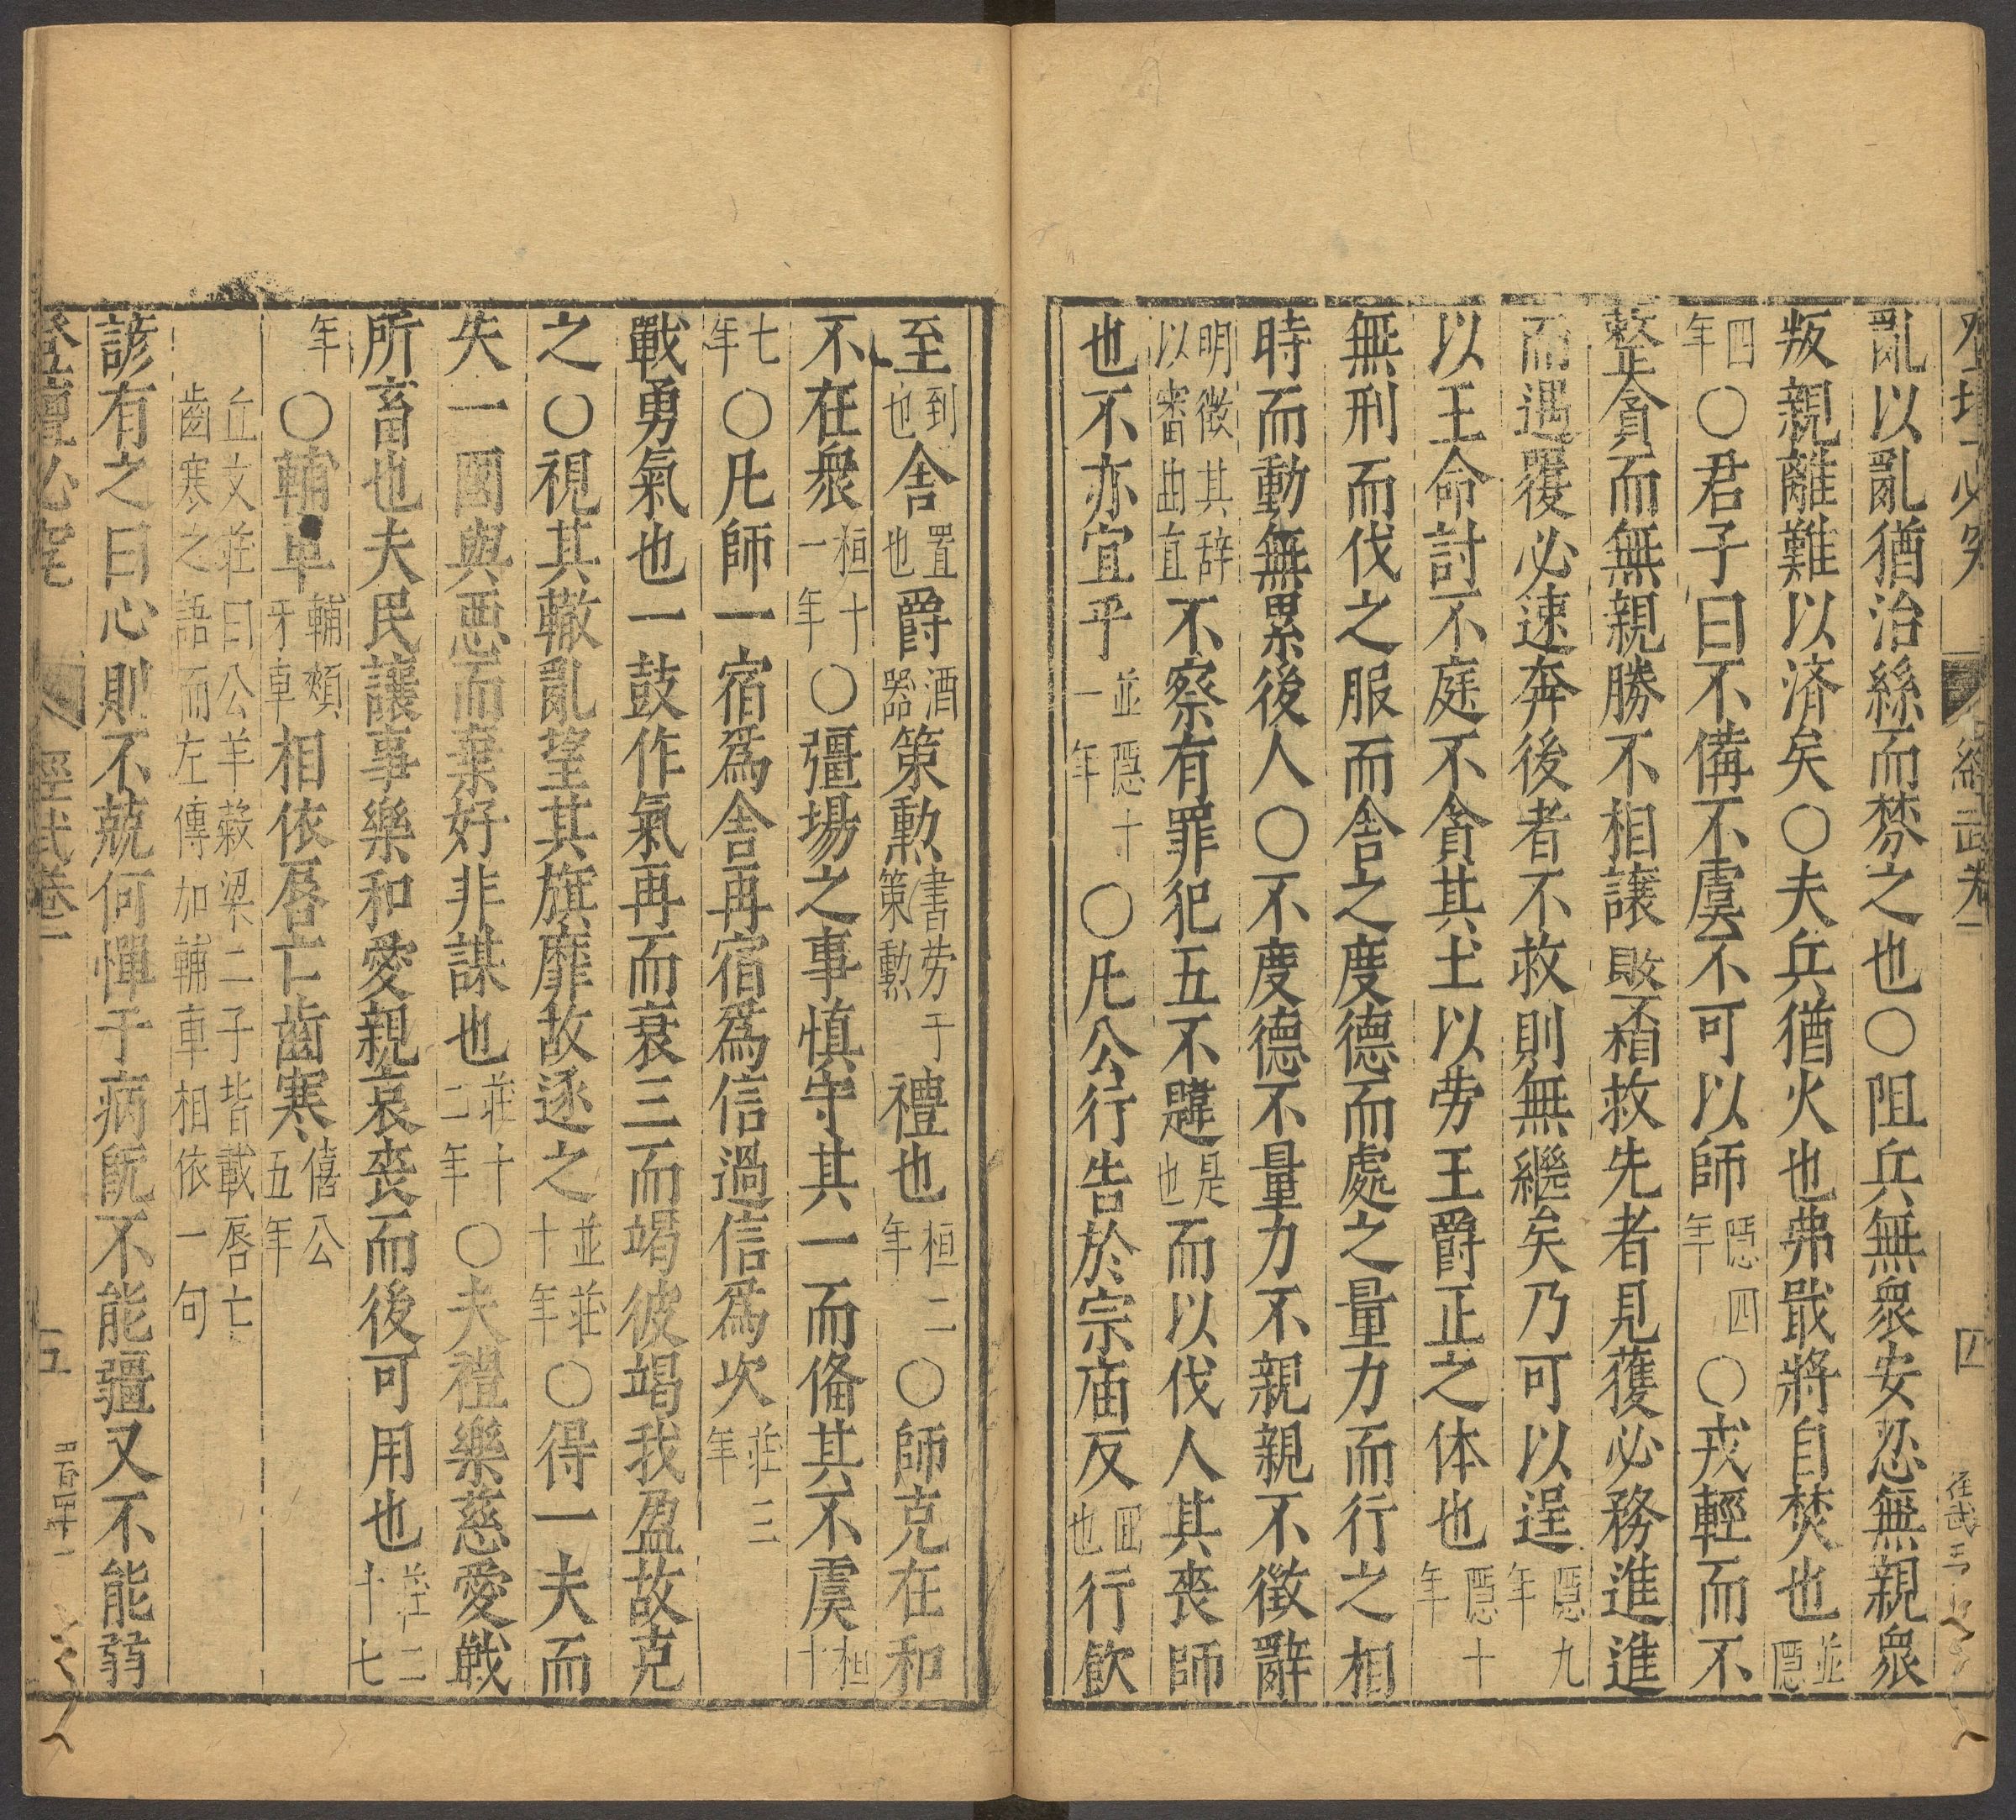 登壇必究 經武卷二 四
亂以亂猶治絲而棼之也○阻兵無衆安忍無親衆
叛親離難以済矣○夫兵猶火也弗戢將自焚也並隱
四年○君子曰不備不虞不可以師隱四年○戎輕而不
整貪而無親勝不相讓敗不相救先者見獲必務進進
而遇覆必速奔後者不救則無繼矣乃可以逞隱九年
以王命討不庭不貪其土以劳王爵正之体也隱十年
無刑而伐之服而舍之度德而處之量力而行之相
時而動無累後人○不度德不量力不親親不徵辭
明徵其辞以審曲直不察有罪犯五不韙是也而以伐人其丧師
也不亦宜乎並隱十一年○凡公行告於宗庙反囬也行飲
至到也舍置也爵酒器策勲書劳于策勲禮也桓二年○師克在和
不在衆桓十一年○彊場之事慎守其一而備其不虞桓十
七年○凡師一宿爲舍再宿爲信過信爲次莊三年
戰勇氣也一鼓作氣再而衰三而竭彼竭我盈故克
之○視其轍亂望其旗靡故逐之並莊十年○得一夫而
失一國與惡而棄好非謀也莊十二年○夫禮樂慈愛戰
所畜也夫民讓事樂和愛親哀丧而後可用也莊二十七
年○輔車輔頰牙車相依唇亡齒寒僖公五年
丘文莊曰公羊穀梁二子皆載唇亡
齒寒之語而左傳加輔車相依一句
諺有之曰心則不兢何憚于病旣不能彊又不能弱
登壇必究 經武卷二 五